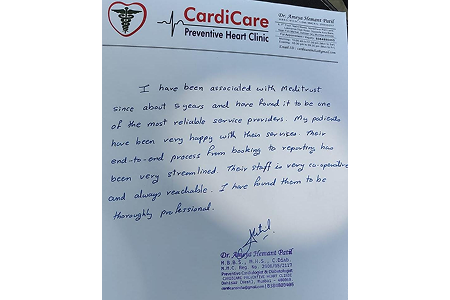 CardiCare
Preventive Heart Clinic
Dr. Ameya Hemant Patil
I have been associated with Meditrust
since about 5 years and have found it to be one
of the most reliable service providers. My patients
have been very happy with their services. Their
end-to-end process from booking to reporting has
been very streamlined. Their staff is very co-operative
and always reachable. I have found them to be
thoroughly professional.
Dr. Ameya Hemant Patil
Preventive Cardiologist & Diabetologist
CARDICARE PREVENTIVE HEART CLINIC